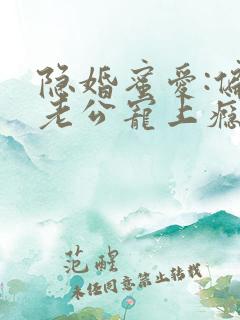 隐婚蜜愛:偏
老公寵上瘾
范醒
未经同意禁止转载